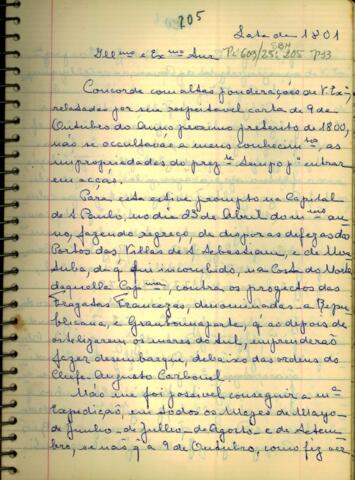 205
Lata de 1801
Illmo e Exmo Snr
Pi 603/251 205 P33
Concorde com altas ponderações de V. Exa,
relatadas por sua respeitavel carta de 9 de
Outubro do Anno proximo preterito de 1800,
não se occultavão a meus conhecimtos, as
impropriedades do prezte tempo pa entrar
em acção.
Para esta estive prompto na Capital
de S Paulo, no dia 23 de Abril do mmo an-
no, fazendo regreço, de dispor as defezas dos
Portos das Villas de S Sebastiam, e de Uba-
tuba, de q' fui incumbido, na Costa do Norte
daquella Capnia, contra os projectos das
Fragatas Francezas, denominadas - a Repu-
blicana, e Granbounaparte, q' ao depois de
infelizerem os mares do Sul, emprenderão
fazer desembarque, debaixo das ordens do
Chefe Augusto Carbonel.
Não me foi possivel conseguir a ma
expedição, em todos os Mezes de Mayo -
de Junho - de Julho - de Agosto - e de Setem-
bro, se não q' a 9 de Outubro, como fiz ver